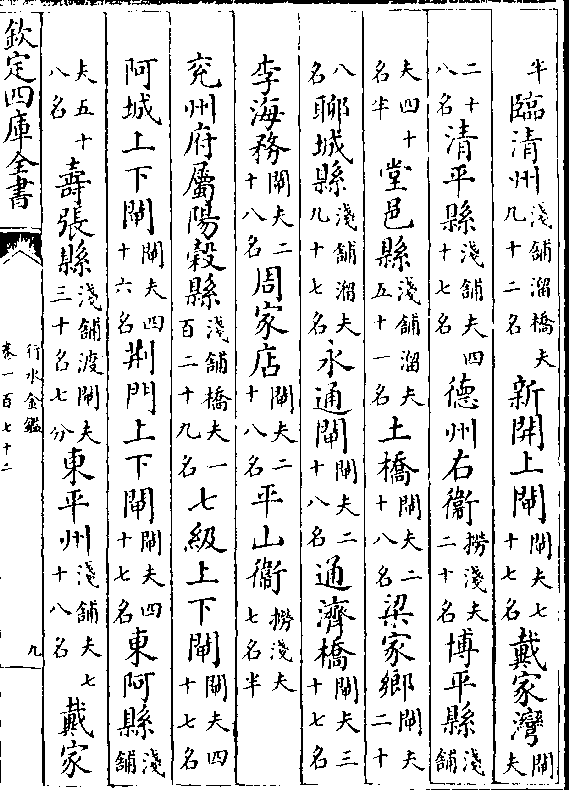 半臨清州淺舖溜橋夫九十二名新開上閘閘夫七十七名戴家灣閘夫
二十八名清平縣淺舖夫四十七名德州右衞撈淺夫二十名博平縣淺舖
夫四十名半堂邑縣淺舖溜夫五十一名土橋閘夫二十八名梁家鄉閘夫二十
八名聊城縣淺舖溜夫九十七名永通閘閘夫二十八名通濟橋閘夫三十七名
李海務閘夫二十八名周家店閘夫二十八名平山衞撈淺夫七名半
兖州府屬陽穀縣淺舖橋夫一百二十九名七級上下閘閘夫四十七名
阿城上下閘閘夫四十六名荆門上下閘閘夫四十七名東阿縣淺舖
夫五十八名壽張縣淺舖渡閘夫三十名七分東平州淺舖夫七十八名戴家
欽定四庫全書
行水金鑑
卷一百七十二
九